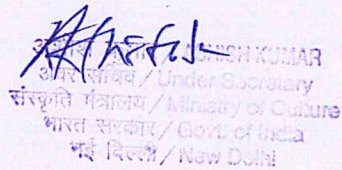 आशीष कुमार / ASHISH KUMAR
अवर सचिव / Under Secretary
संस्कृति मंत्रालय / Ministry of Culture
भारत सरकार / Govt. of India
नई दिल्ली / New Delhi